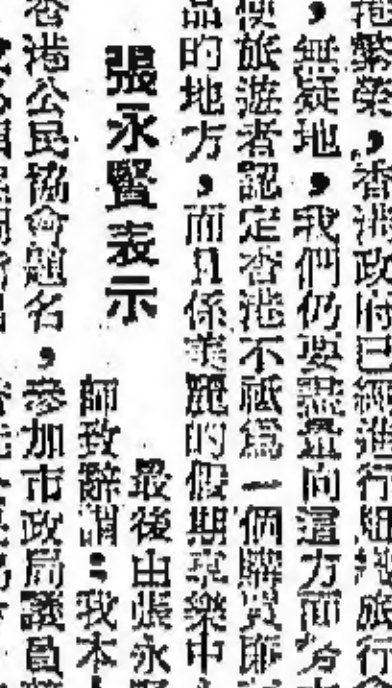 港繁榮，香港政府已經進行組織旅行
，無疑地，我們仍要盡量向這方面
使旅遊者認定香港不祗為一個購買廉
品的地方，而且係美麗的假期享樂中
張永賢表示
最後由張永
師致辭謂：我本
香港公民協會題名，參加市政局議員